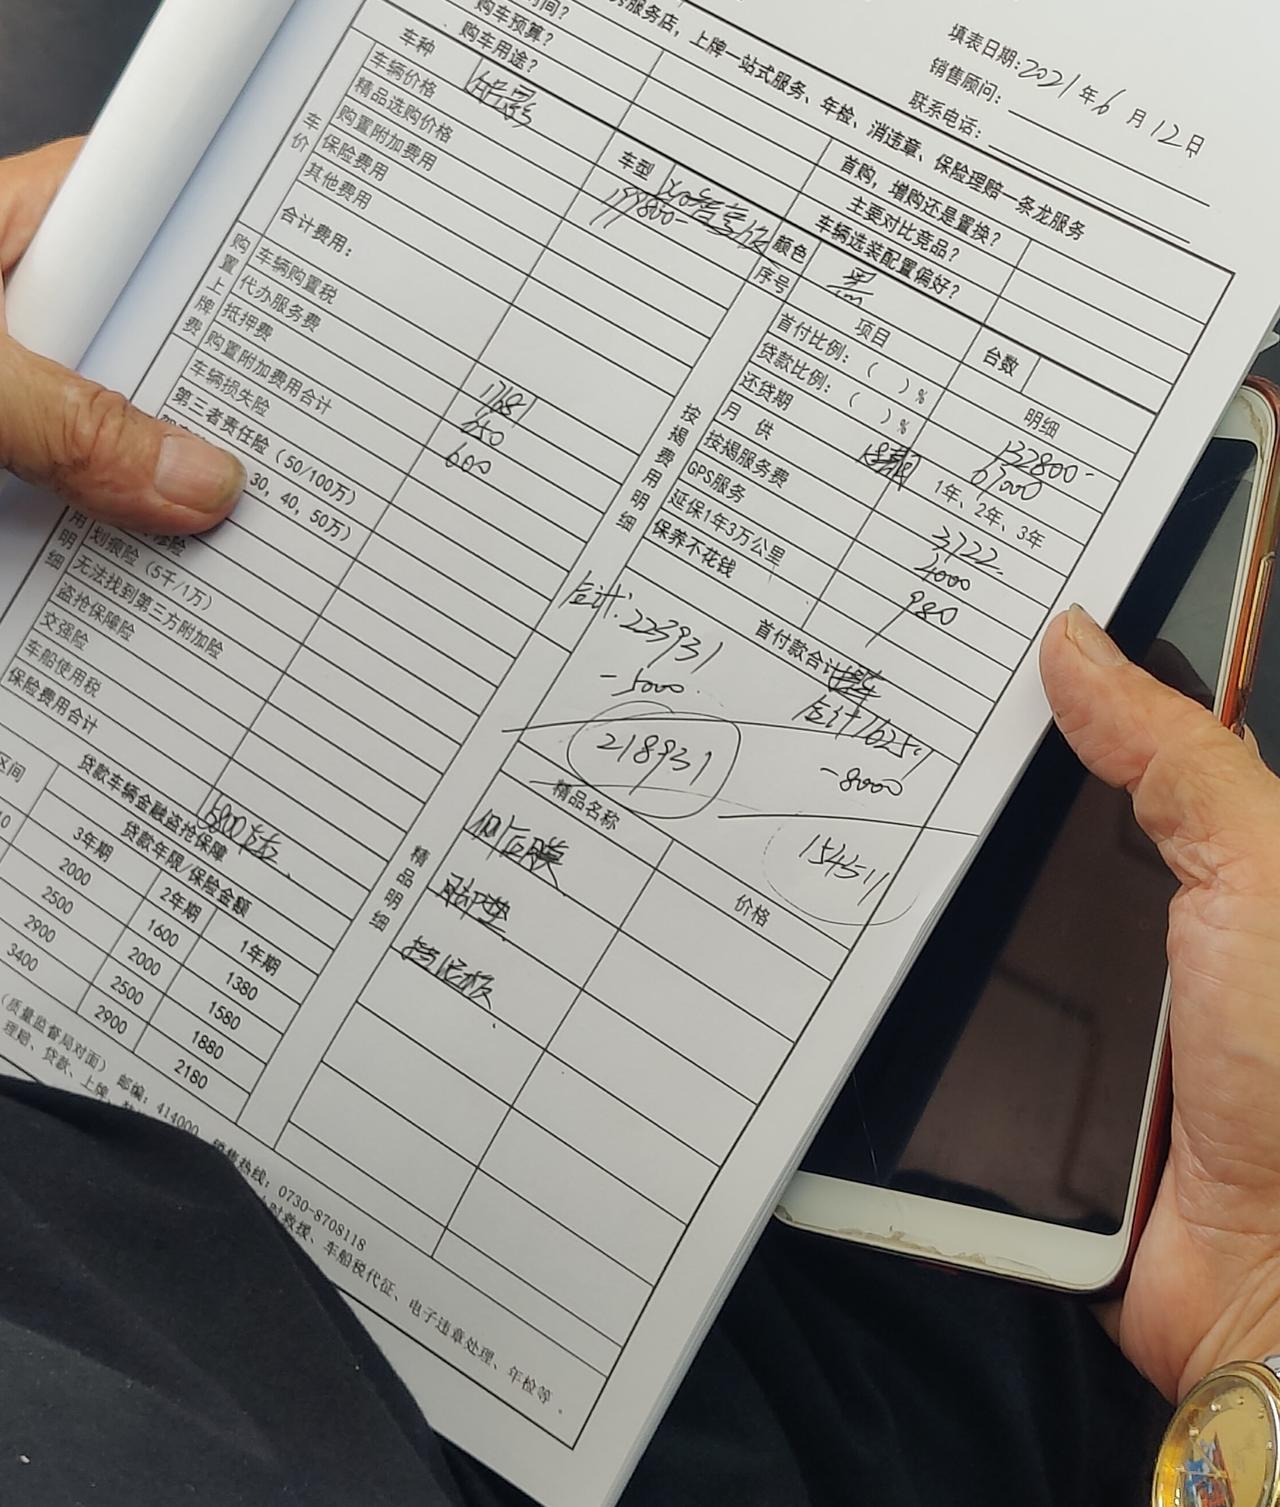 填表日期:2021年6月12日
销售顾问:
联系电话:
务服务店,上牌一站式服务、年检、消违章、保险理赔一条龙服务
时间?
首购,增购还是置换?
购车预算?
主要对比竞品?
购车用途?
车辆选装配置偏好?
车种
车型
颜色 黑
台数
车价
车辆价格 199800-
精品选购价格
购置附加费用
保险费用
其他费用
合计费用:
购置上牌费
车辆购置税 17681
代办服务费 850
抵押费 600
购置附加费用合计
用明细
车辆损失险
第三者责任险(50/100万)
30,40,50万)
划痕险(5千/1万)
无法找到第三方附加险
盗抢保障险
交强险
车船使用税
保险费用合计
贷款车辆金融盗抢保障
区间
贷款年限/保险金额
3年期 2年期 1年期
10 2000 1600 1380
2500 2000 1580
2900 2500 1880
3400 2900 2180
按揭费用明细
序号 项目 明细
首付比例:( )% 132800-
贷款比例:( )% 67000
还贷期 1年、2年、3年
月 供
按揭服务费 3722
GPS服务 4000
延保1年3万公里 980
保养不花钱
首付款合计
合计:223931
-5000
218931
合计162511
-8000
154511
精品明细
精品名称 价格
脚垫
挡泥板
(质量监督局对面) 邮编:414000 销售热线:0730-8708118
理赔、贷款、上牌、
时救援、车船税代征、电子违章处理、年检等。